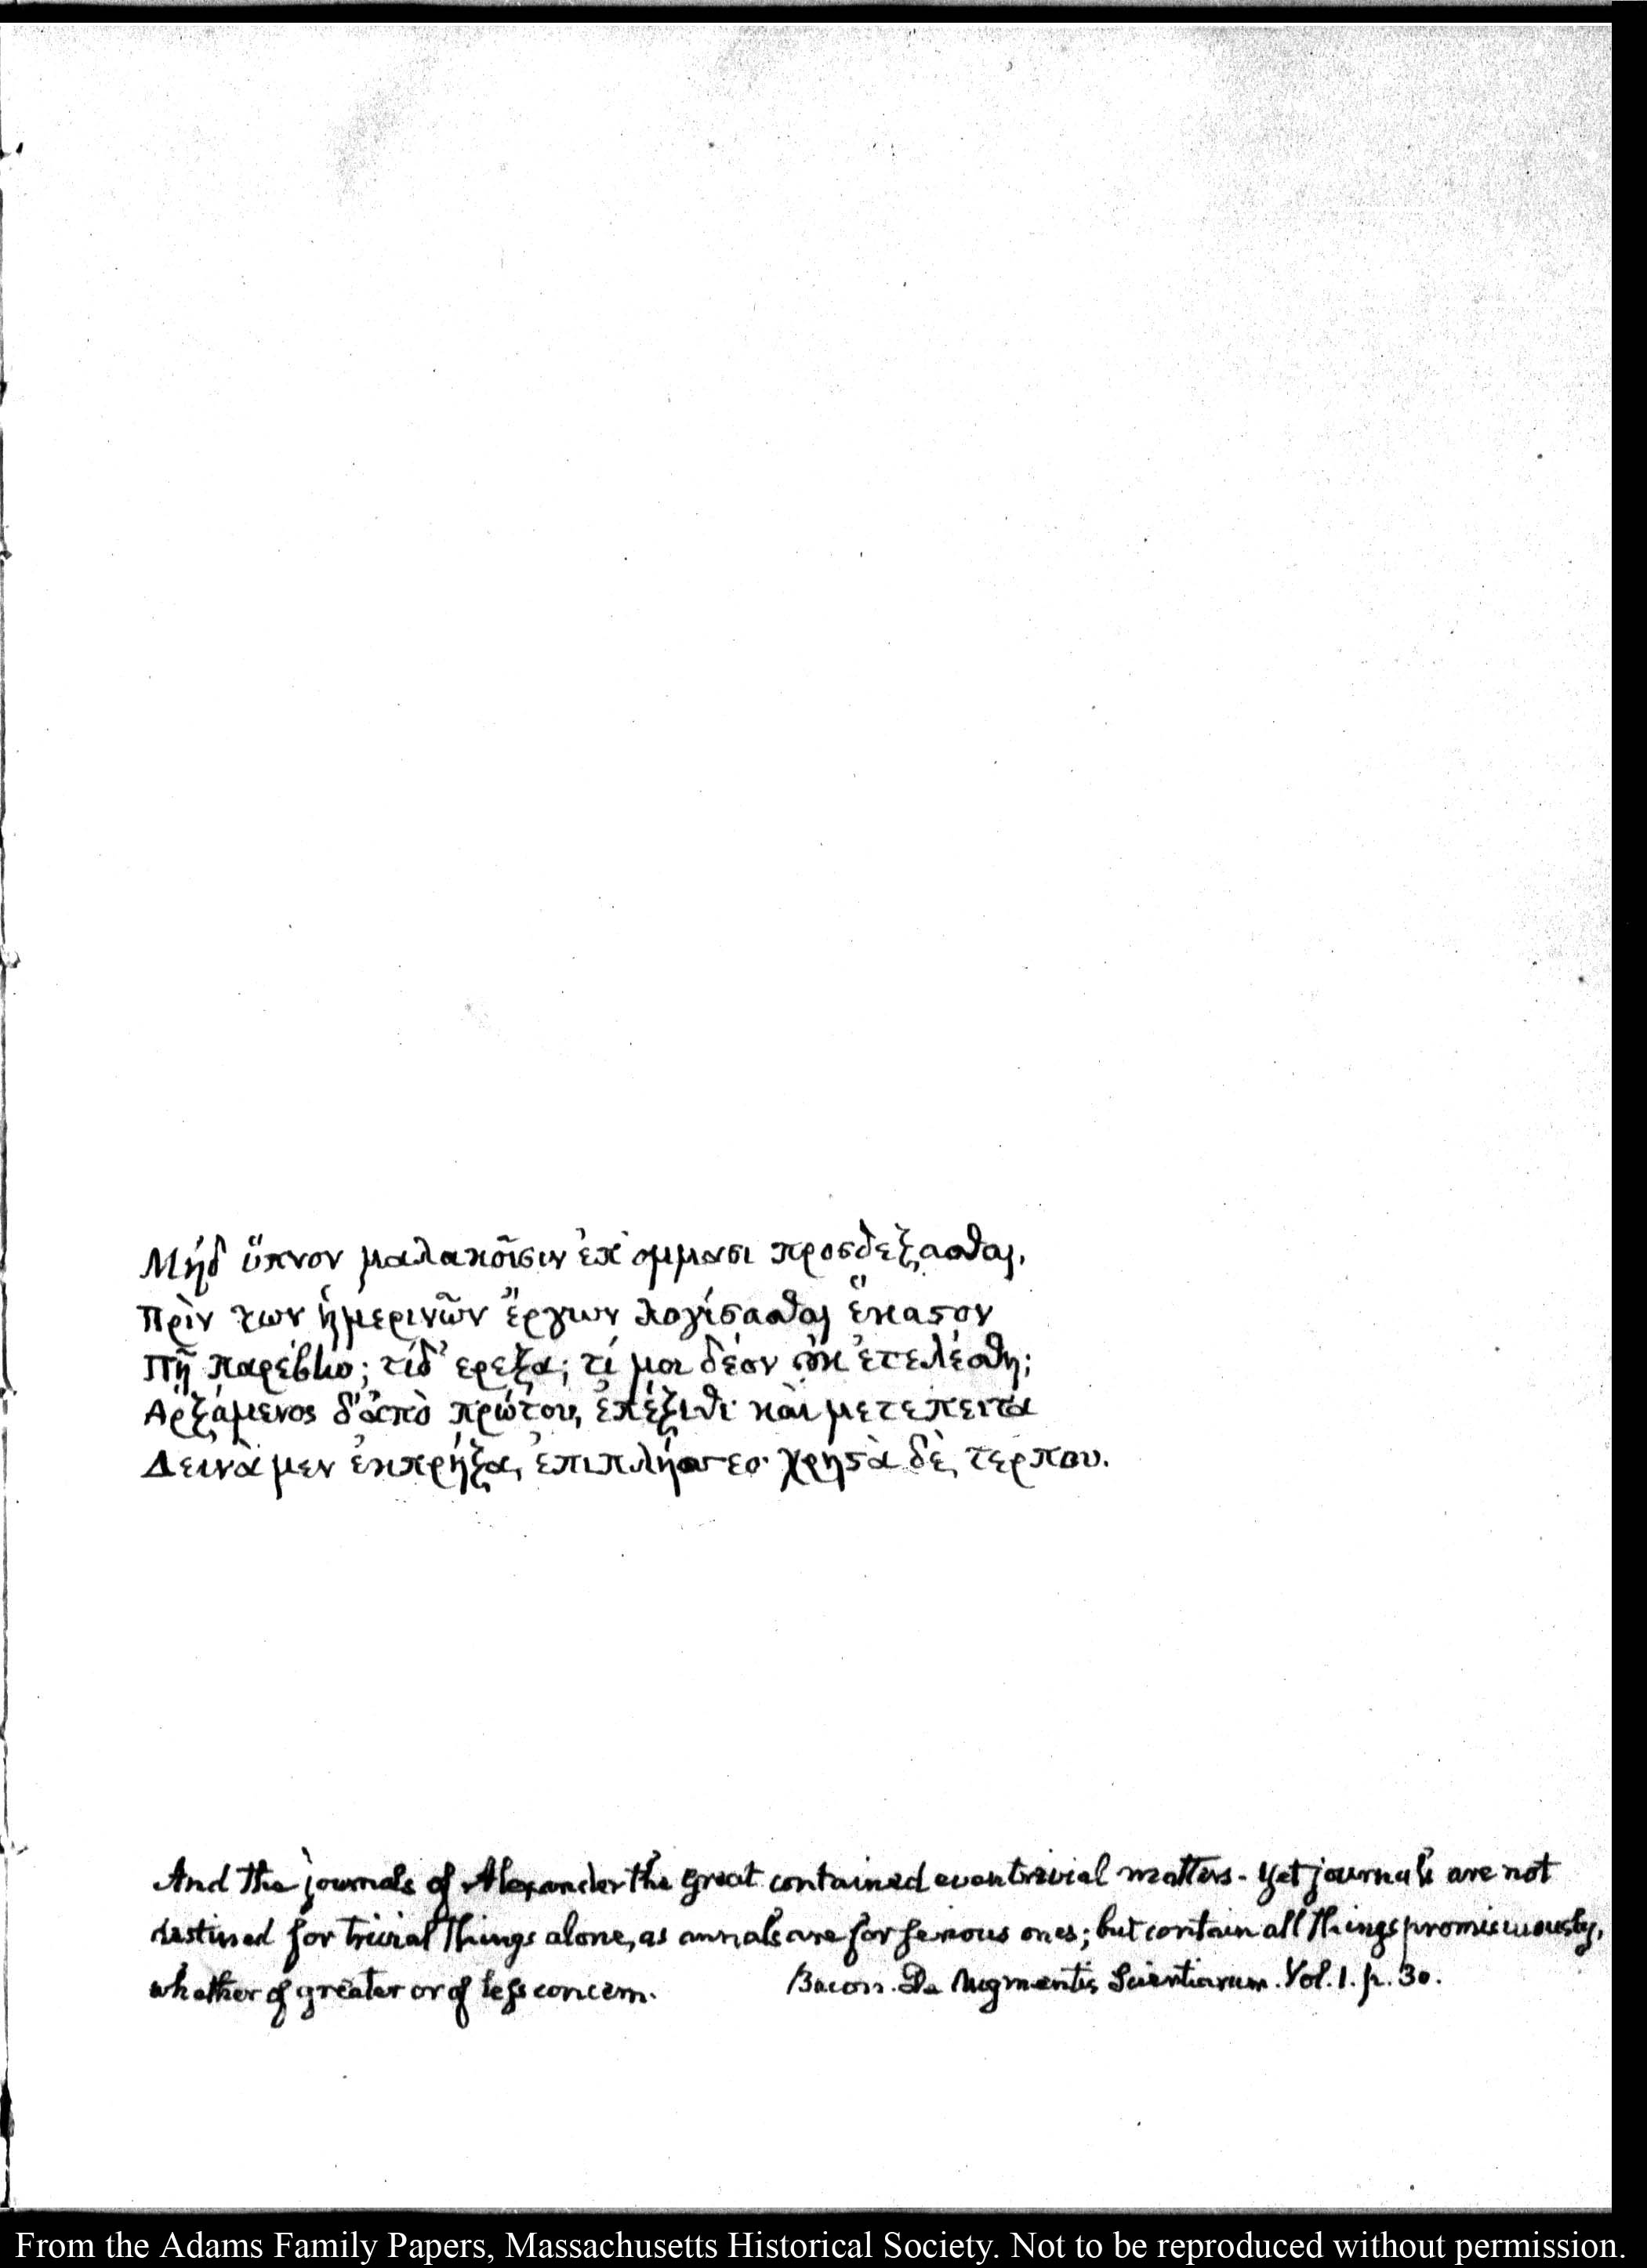 Μήδ ὕπνον μαλακοῖσιν ἐπ' ομμασι προσδεξασθαι,
Πρὶν των ἡμερινῶν ἔργων λογίσασθαι ἕκαϛον
Πῆ παρέβην; τίδ' ερεξα; τί μοι δέον ȣ̓κ ἐτελέσθη;
Αρξάμενος δ'ἀπὸ πρώτου, ἐπέξιθι· καὶ μετεπειτα
Δεινὰ μεν ἐκπρήξα, ἐπιπλήσσεο· χρηϛὰ δὲ, τερπου.
And the journals of Alexander the great contained even trivial matters - Yet journals are not
destined for trivial things alone, as annals are for serious ones; but contain all things promiscuously,
whether of greater or of less concern. Bacon. De Augmentis Scientiarum. Vol. 1. p. 30.
From the Adams Family Papers, Massachusetts Historical Society. Not to be reproduced without permission.